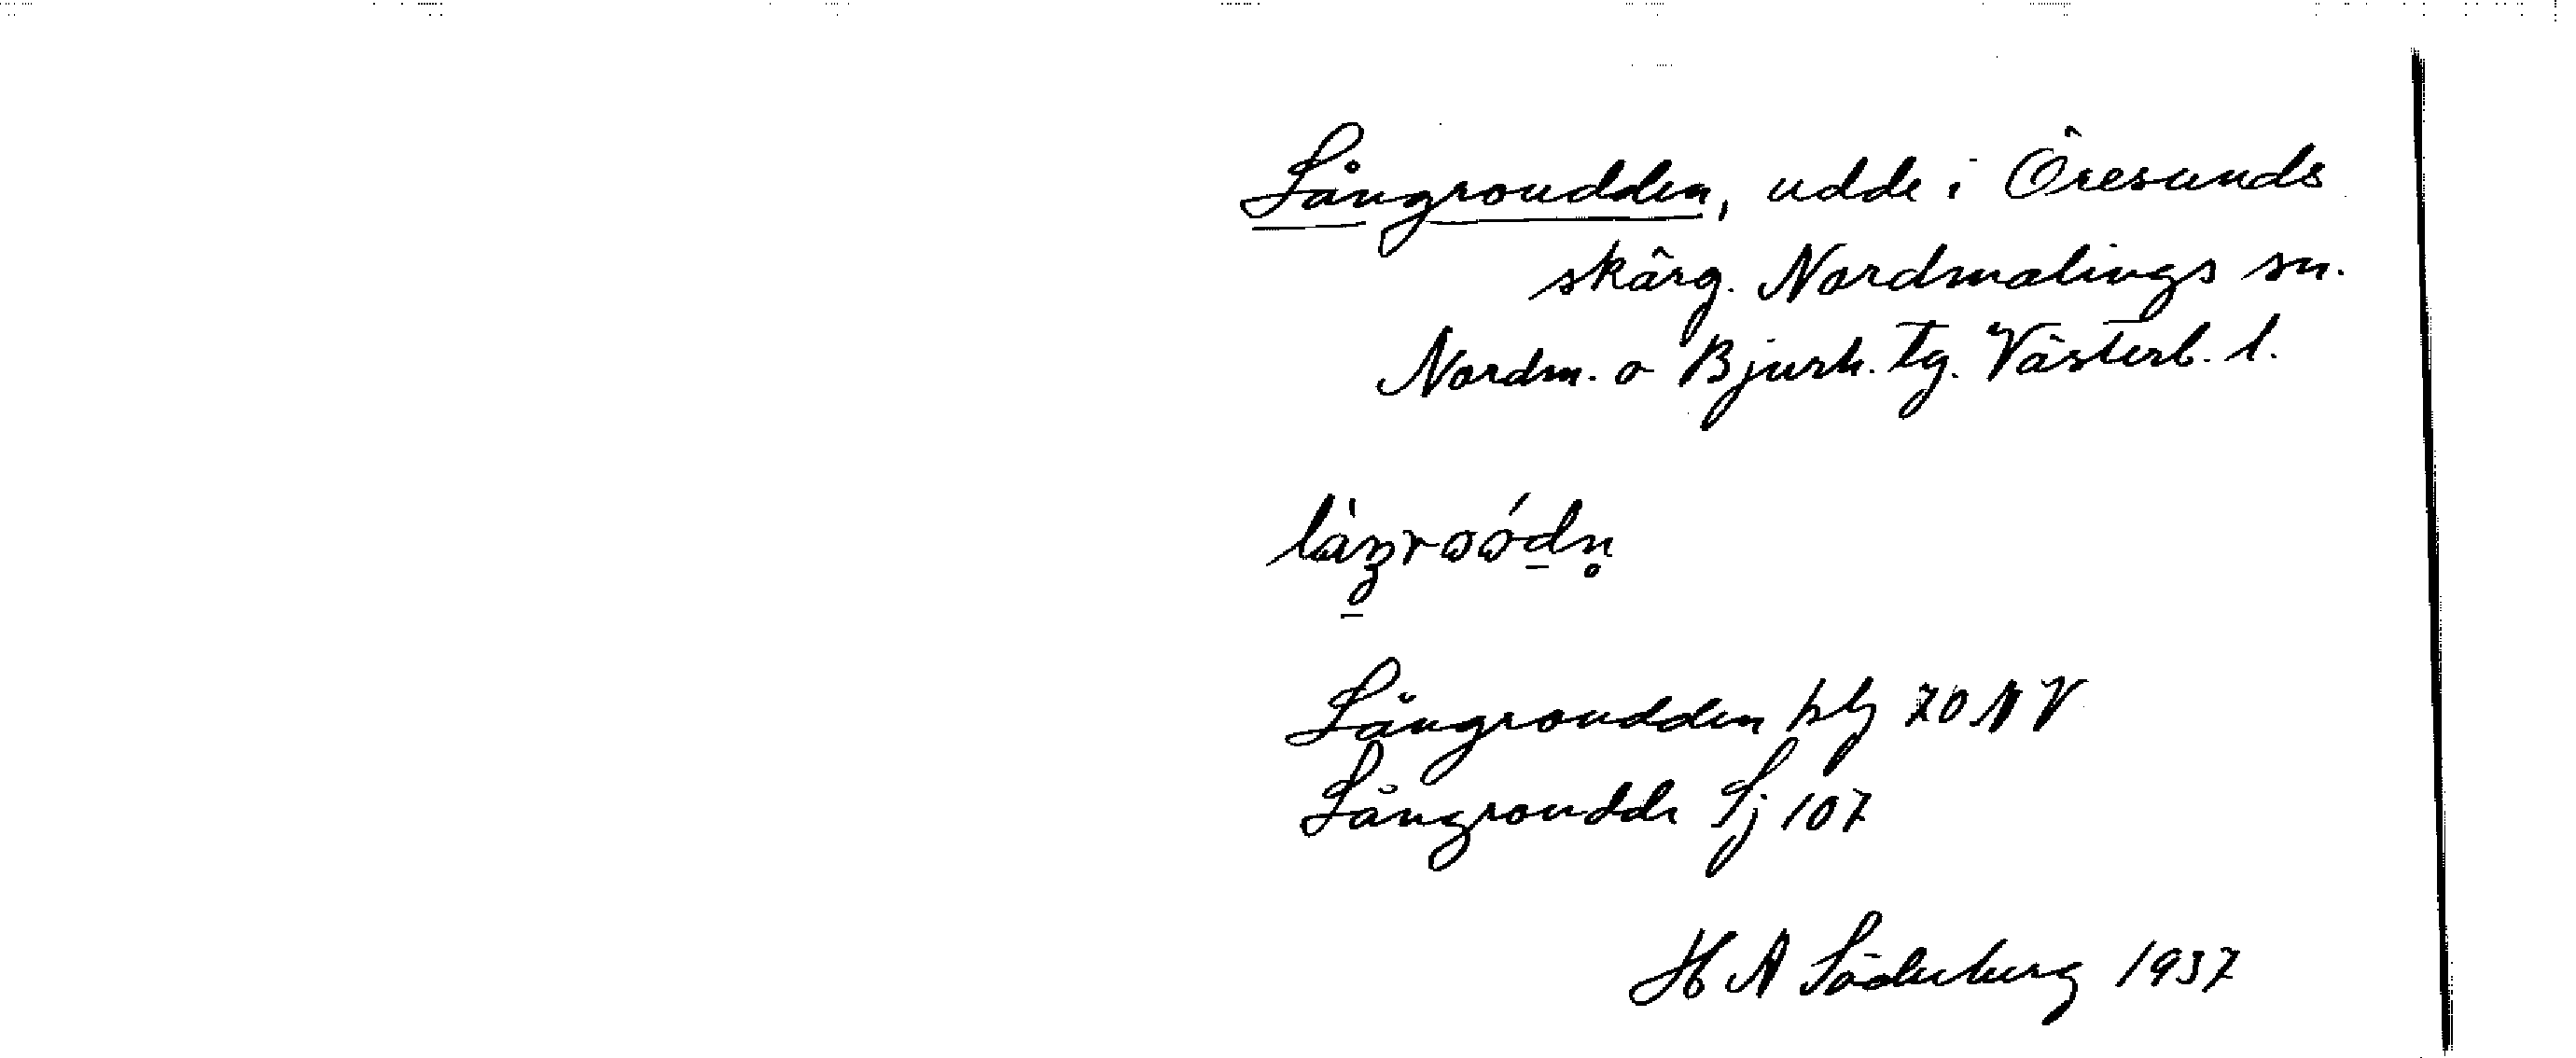 Långroudden, udde i Öresunds
skärg. Nordmalings sn.
Nordm. o Bjurh. tg. Västerb. l.
Långroudden 70 NV
Långroudde Sj 107
H A Söderberg 1937